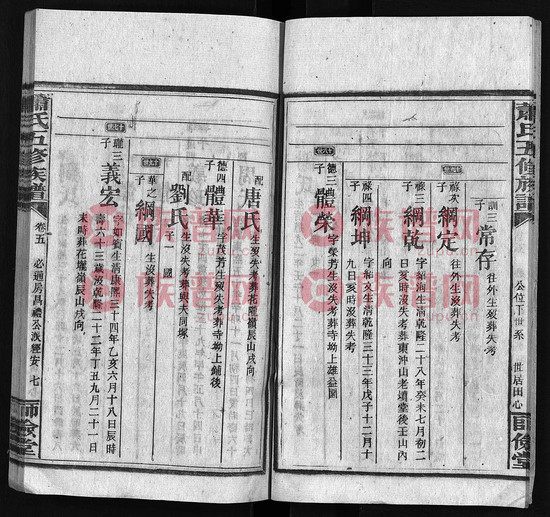 蕭氏五修族譜
公位下世系
世居田心
師儉堂
訓三子
常存
往外生歿葬失考
祿次子
綱定
往外生沒葬失考
祿三子
綱乾
字
生清乾隆二十八年癸未七月初二
日亥時沒失考葬東沖山老墳堂後壬山內
祿四子
綱坤
字
生清乾隆三十三年戊子十二月十
九日亥時沒葬失考
德三子
體榮
字榮芳生歿失考葬寺坳上雄益園
配唐氏
生歿失考葬花隴嶺辰山戌向
德四子
體華
字茂芳生歿失考葬寺坳上鋪後
配劉氏
生沒失考葬與夫同塚
子一
國
華之子
綱國
生沒葬失考
瓏三子
義宏
字如賓生清康熙三十四年乙亥六月十八日辰時
壽六十三歲沒乾隆二十二年丁丑九月二十一日
未時葬花壠嶺辰山戌向
蕭氏五修族譜
卷五
必通房昌禮公派經安
七
師儉堂
族譜网
族譜网